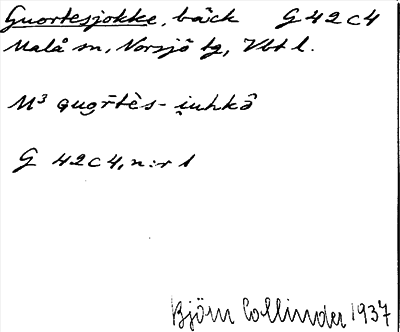 Guortesjokke, bäck G 42 C 4
Malå sn, Norsjö tg, Vbtl.
M³ guo̯r̄tès- i̯uhkâ
G 42 C 4, n:r 1
Björn Collinder 1937